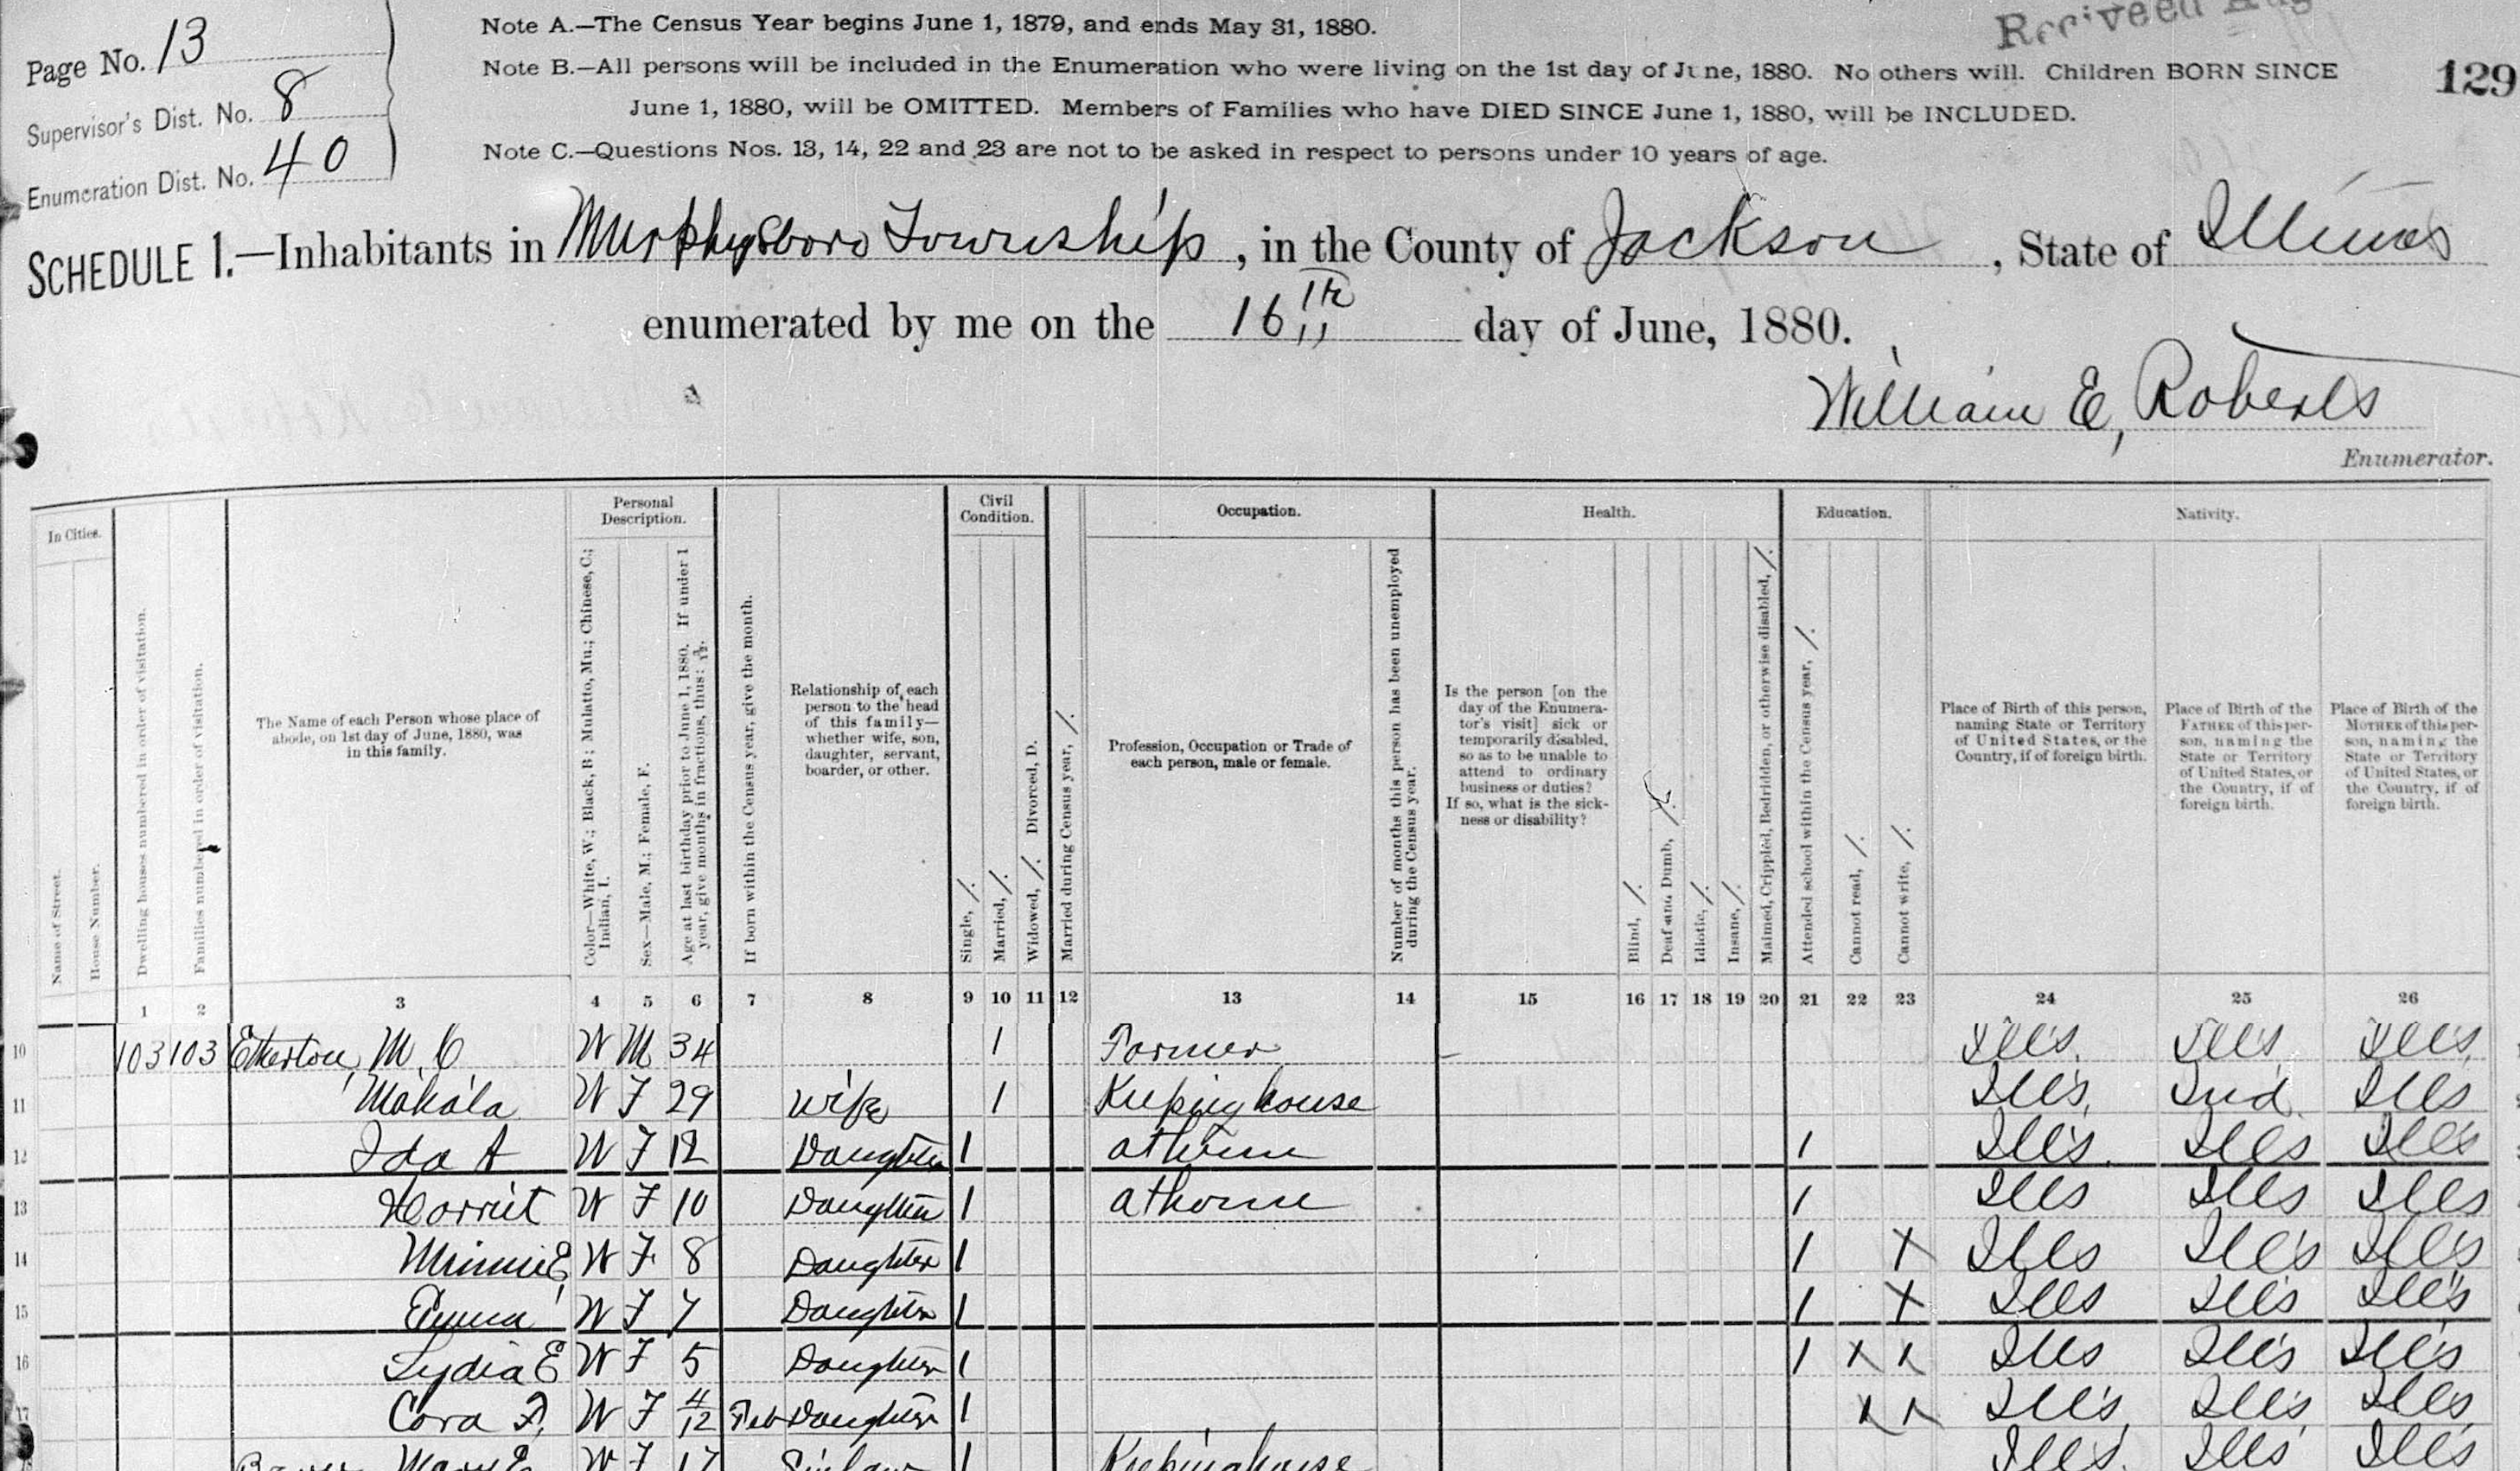 Page No. 13
Supervisor's Dist. No. 8
Enumeration Dist. No. 40
Note A.—The Census Year begins June 1, 1879, and ends May 31, 1880.
Note B.—All persons will be included in the Enumeration who were living on the 1st day of June, 1880. No others will. Children BORN SINCE
June 1, 1880, will be OMITTED. Members of Families who have DIED SINCE June 1, 1880, will be INCLUDED.
Note C.—Questions Nos. 13, 14, 22 and 23 are not to be asked in respect to persons under 10 years of age.
Receiveed Aug
129
SCHEDULE 1.—Inhabitants in Murphysboro Township, in the County of Jackson, State of Illinois
enumerated by me on the 16th day of June, 1880.
William E, Roberts
Enumerator.
In Cities.
Personal Description.
Civil Condition.
Occupation.
Health.
Education.
Nativity.
Name of Street.
House Number.
Dwelling houses numbered in order of visitation.
Families numbered in order of visitation.
The Name of each Person whose place of
abode, on 1st day of June, 1880, was
in this family.
Color—White, W.; Black, B.; Mulatto, Mu.; Chinese, C.;
Indian, I.
Sex—Male, M.; Female, F.
Age at last birthday prior to June 1, 1880. If under 1
year, give months in fractions, thus: 3/12.
If born within the Census year, give the month.
Relationship of each
person to the head
of this family—
whether wife, son,
daughter, servant,
boarder, or other.
Single, /.
Married, /.
Widowed, /. Divorced, D.
Married during Census year, /.
Profession, Occupation or Trade of
each person, male or female.
Number of months this person has been unemployed
during the Census year.
Is the person [on the
day of the Enumera-
tor's visit] sick or
temporarily disabled,
so as to be unable to
attend to ordinary
business or duties?
If so, what is the sick-
ness or disability?
Blind, /.
Deaf and Dumb, /.
Idiotic, /.
Insane, /.
Maimed, Crippled, Bedridden, or otherwise disabled, /.
Attended school within the Census year, /.
Cannot read, /.
Cannot write, /.
Place of Birth of this person,
naming State or Territory
of United States, or the
Country, if of foreign birth.
Place of Birth of the
FATHER of this per-
son, naming the
State or Territory
of United States, or
the Country, if of
foreign birth.
Place of Birth of the
MOTHER of this per-
son, naming the
State or Territory
of United States, or
the Country, if of
foreign birth.
1 2 3 4 5 6 7 8 9 10 11 12 13 14 15 16 17 18 19 20 21 22 23 24 25 26
10 103 103 Etherton, M. C. W M 34 1 Farmer Ills. Ills Ills.
11 Mahala W F 29 Wife 1 Keeping house Ills. Ind. Ills
12 Ida A W F 12 Daughter 1 at home 1 Ills. Ills Ills
13 Harriet W F 10 Daughter 1 at home 1 Ills Ills Ills
14 Minnie E W F 8 Daughter 1 1 X Ills Ills Ills
15 Emma W F 7 Daughter 1 1 X Ills Ills Ills
16 Lydia E W F 5 Daughter 1 1 X X Ills Ills Ills
17 Cora F. W F 4/12 Feb Daughter 1 X X Ills. Ills Ills
Mary E W F 17 1 Keeping house Ills. Ills Ills